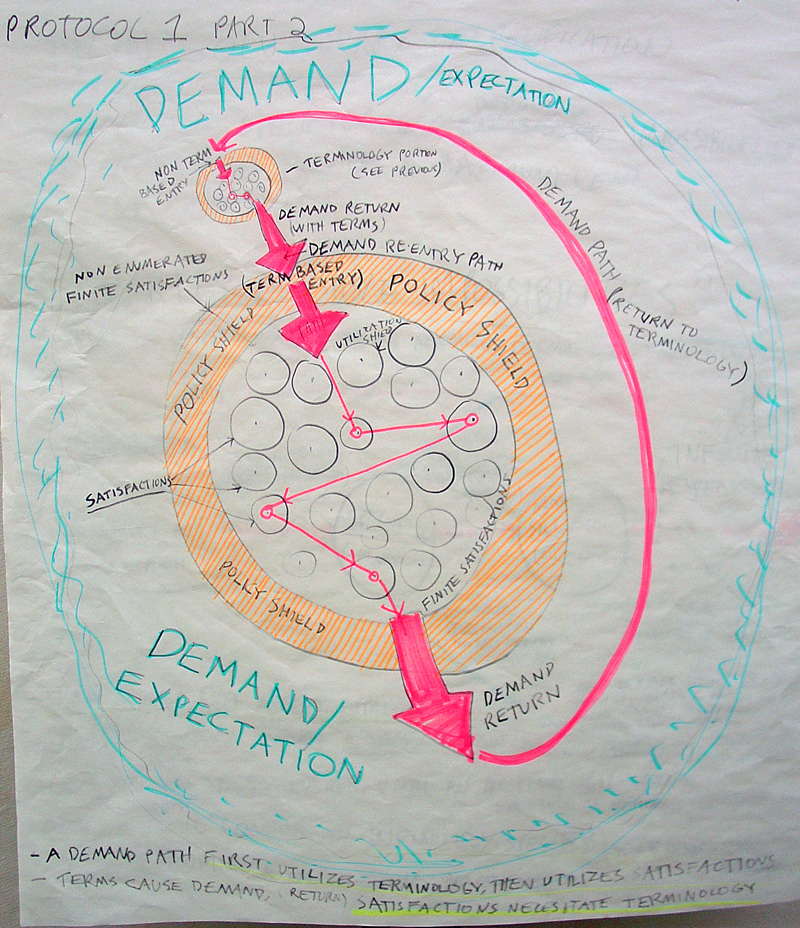 PROTOCOL 1 PART 2
DEMAND/EXPECTATION
NON TERM
BASED
ENTRY
TERMINOLOGY PORTION
(SEE PREVIOUS)
DEMAND RETURN
(WITH TERMS)
DEMAND RE-ENTRY PATH
(TERM BASED
ENTRY)
DEMAND PATH (RETURN TO
TERMINOLOGY)
NON ENUMERATED
FINITE SATISFACTIONS
POLICY SHIELD
POLICY SHIELD
UTILIZATION
SATISFACTIONS
FINITE SATISFACTIONS
POLICY SHIELD
DEMAND/
EXPECTATION
DEMAND
RETURN
- A DEMAND PATH FIRST UTILIZES TERMINOLOGY, THEN UTILIZES SATISFACTIONS
- TERMS CAUSE DEMAND, (RETURN) SATISFACTIONS NECESITATE TERMINOLOGY